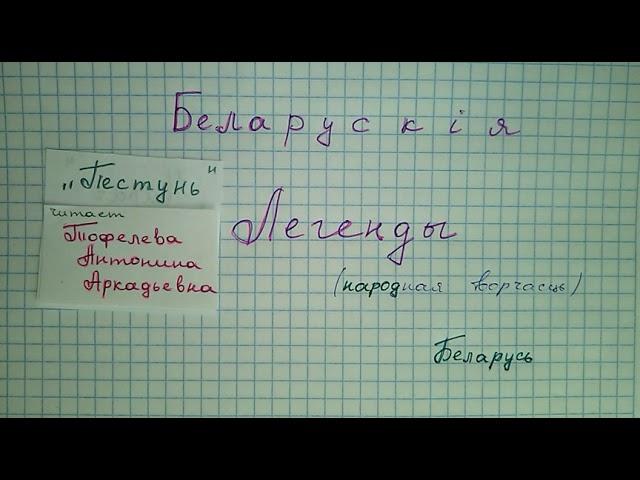 Беларускія
„Пестунь"
читает
Тофелева
Антонина
Аркадьевна
Легенды
(народная творчасць)
Беларусь